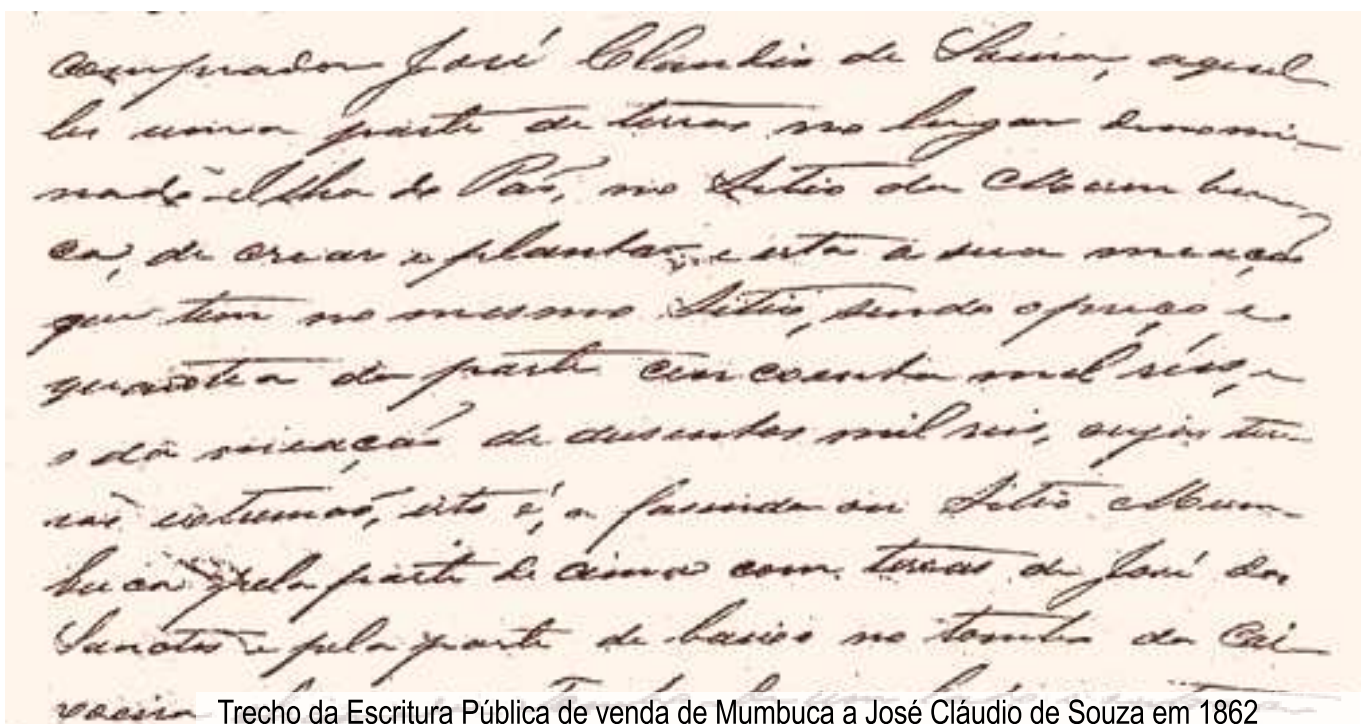 comprador José Claudio de Souza, aquel
les uma parte de terras no lugar denomi-
nado Ilha do Páo, no Sitio da Mumbu
ca, de crear e plantar, e esta a sua meação
que tem no mesmo Sitio, sendo o preço e
quantia da parte cincoenta mil réis, e
o da meação de dusentos mil reis, cujas ter
ras extremão, isto é, a fasenda ou Sitio Mum-
buca pela parte de cima com terras de José dos
Sanctos e pela parte de baixo no tombo da Ca
xoeira
Trecho da Escritura Pública de venda de Mumbuca a José Cláudio de Souza em 1862